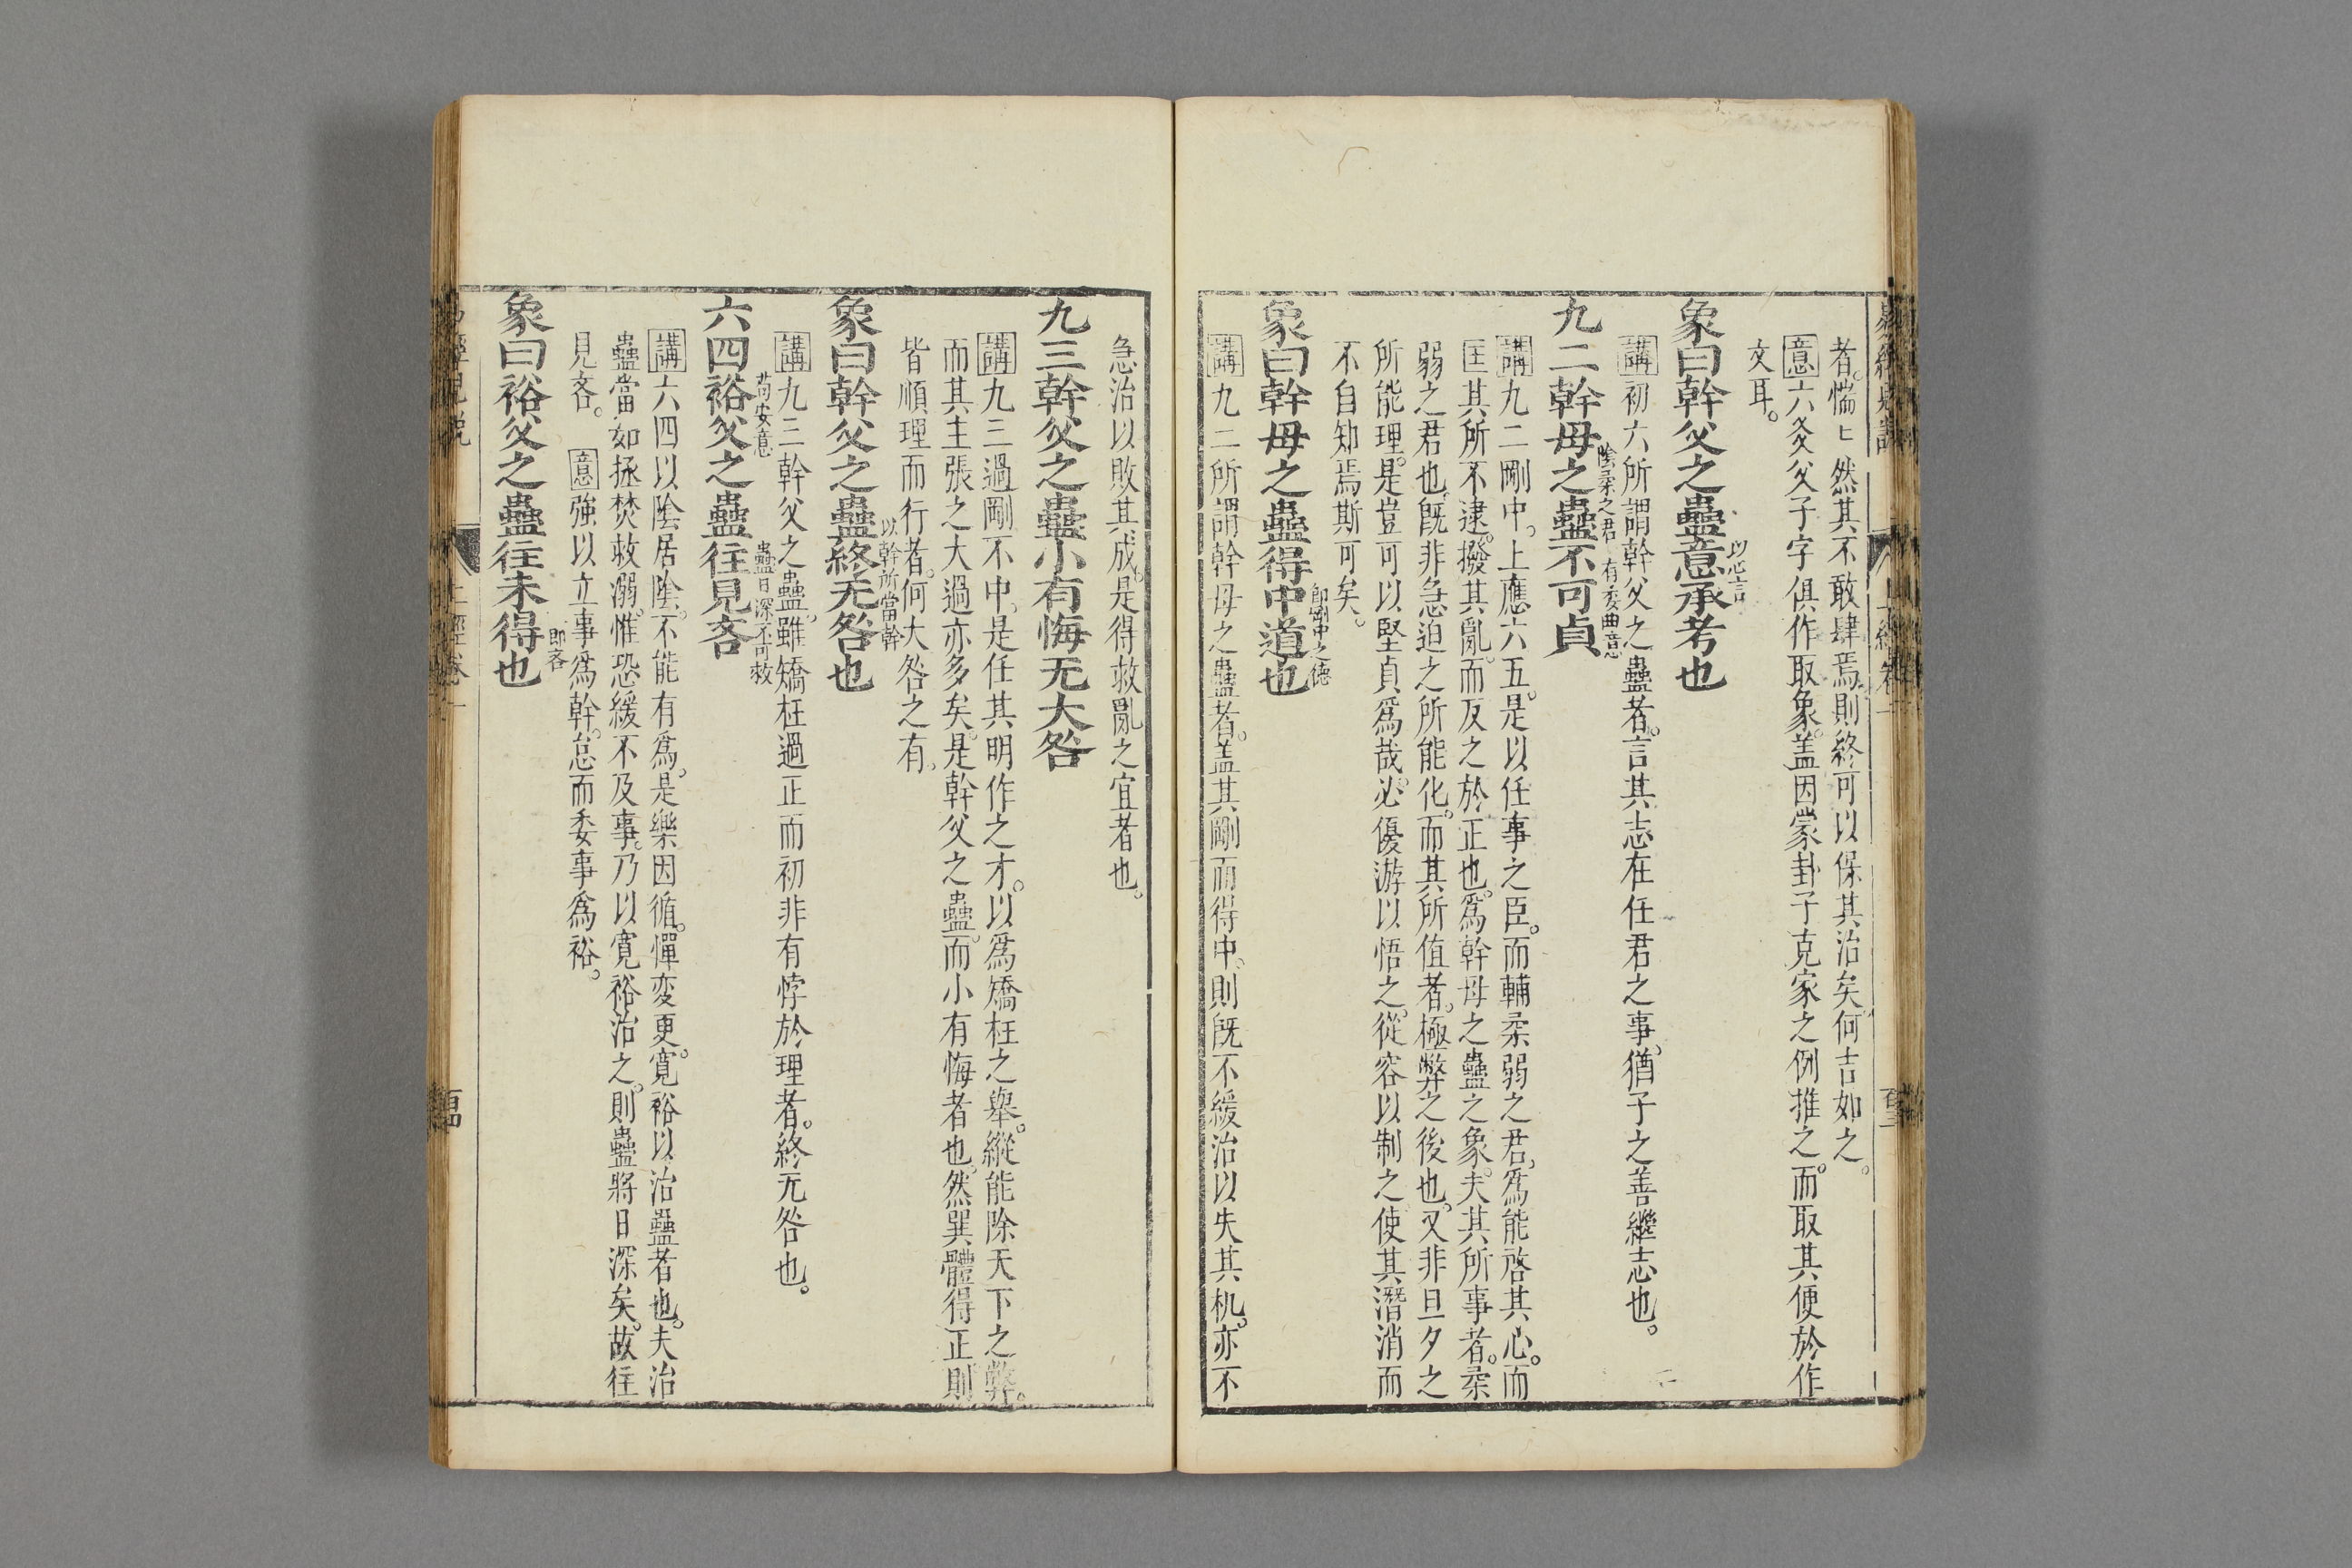 者。惴〻然其不敢肆焉。則終可以保其治矣。何吉如之。
意六爻父子字俱作取象。盖因蒙卦子克家之例推之。而取其便於作
文耳。
象曰幹父之蠱意承考也
以心言
講初六所謂幹父之蠱者。言其志在任君之事。猶子之善繼志也。
九二幹母之蠱不可貞
陰柔之君 有委曲意
講九二剛中。上應六五。是以任事之臣。而輔柔弱之君。爲能啓其心。而
匡其所不逮。撥其亂。而反之於正也。爲幹母之蠱之象。夫其所事者。柔
弱之君也。旣非急迫之所能化。而其所值者。極弊之後也。又非旦夕之
所能理。是豈可以堅貞爲哉。必優游以悟之。從容以制之。使其潛消而
不自知焉斯可矣。
象曰幹母之蠱得中道也
即剛中之德
講九二所謂幹母之蠱者。盖其剛而得中。則旣不緩治以失其机。亦不
急治以敗其成。是得救亂之宜者也。
九三幹父之蠱小有悔无大咎
講九三過剛不中。是任其明作之才。以爲矯枉之舉。縱能除天下之弊。
而其主張之大過亦多矣。是幹父之蠱。而小有悔者也。然巽體得正。則
皆順理而行者。何大咎之有。
象曰幹父之蠱終无咎也
以幹所當幹
講九三幹父之蠱。雖矯枉過正。而初非有悖於理者。終无咎也。
六四裕父之蠱往見吝
苟安意 蠱日深不可救
講六四以陰居陰。不能有爲。是樂因循。憚变更。寬裕以治蠱者也。夫治
蠱當如拯焚救溺。惟恐緩不及事。乃以寬裕治之。則蠱將日深矣。故往
見吝。 意強以立事爲幹。怠而委事爲裕。
象曰裕父之蠱往未得也
即吝